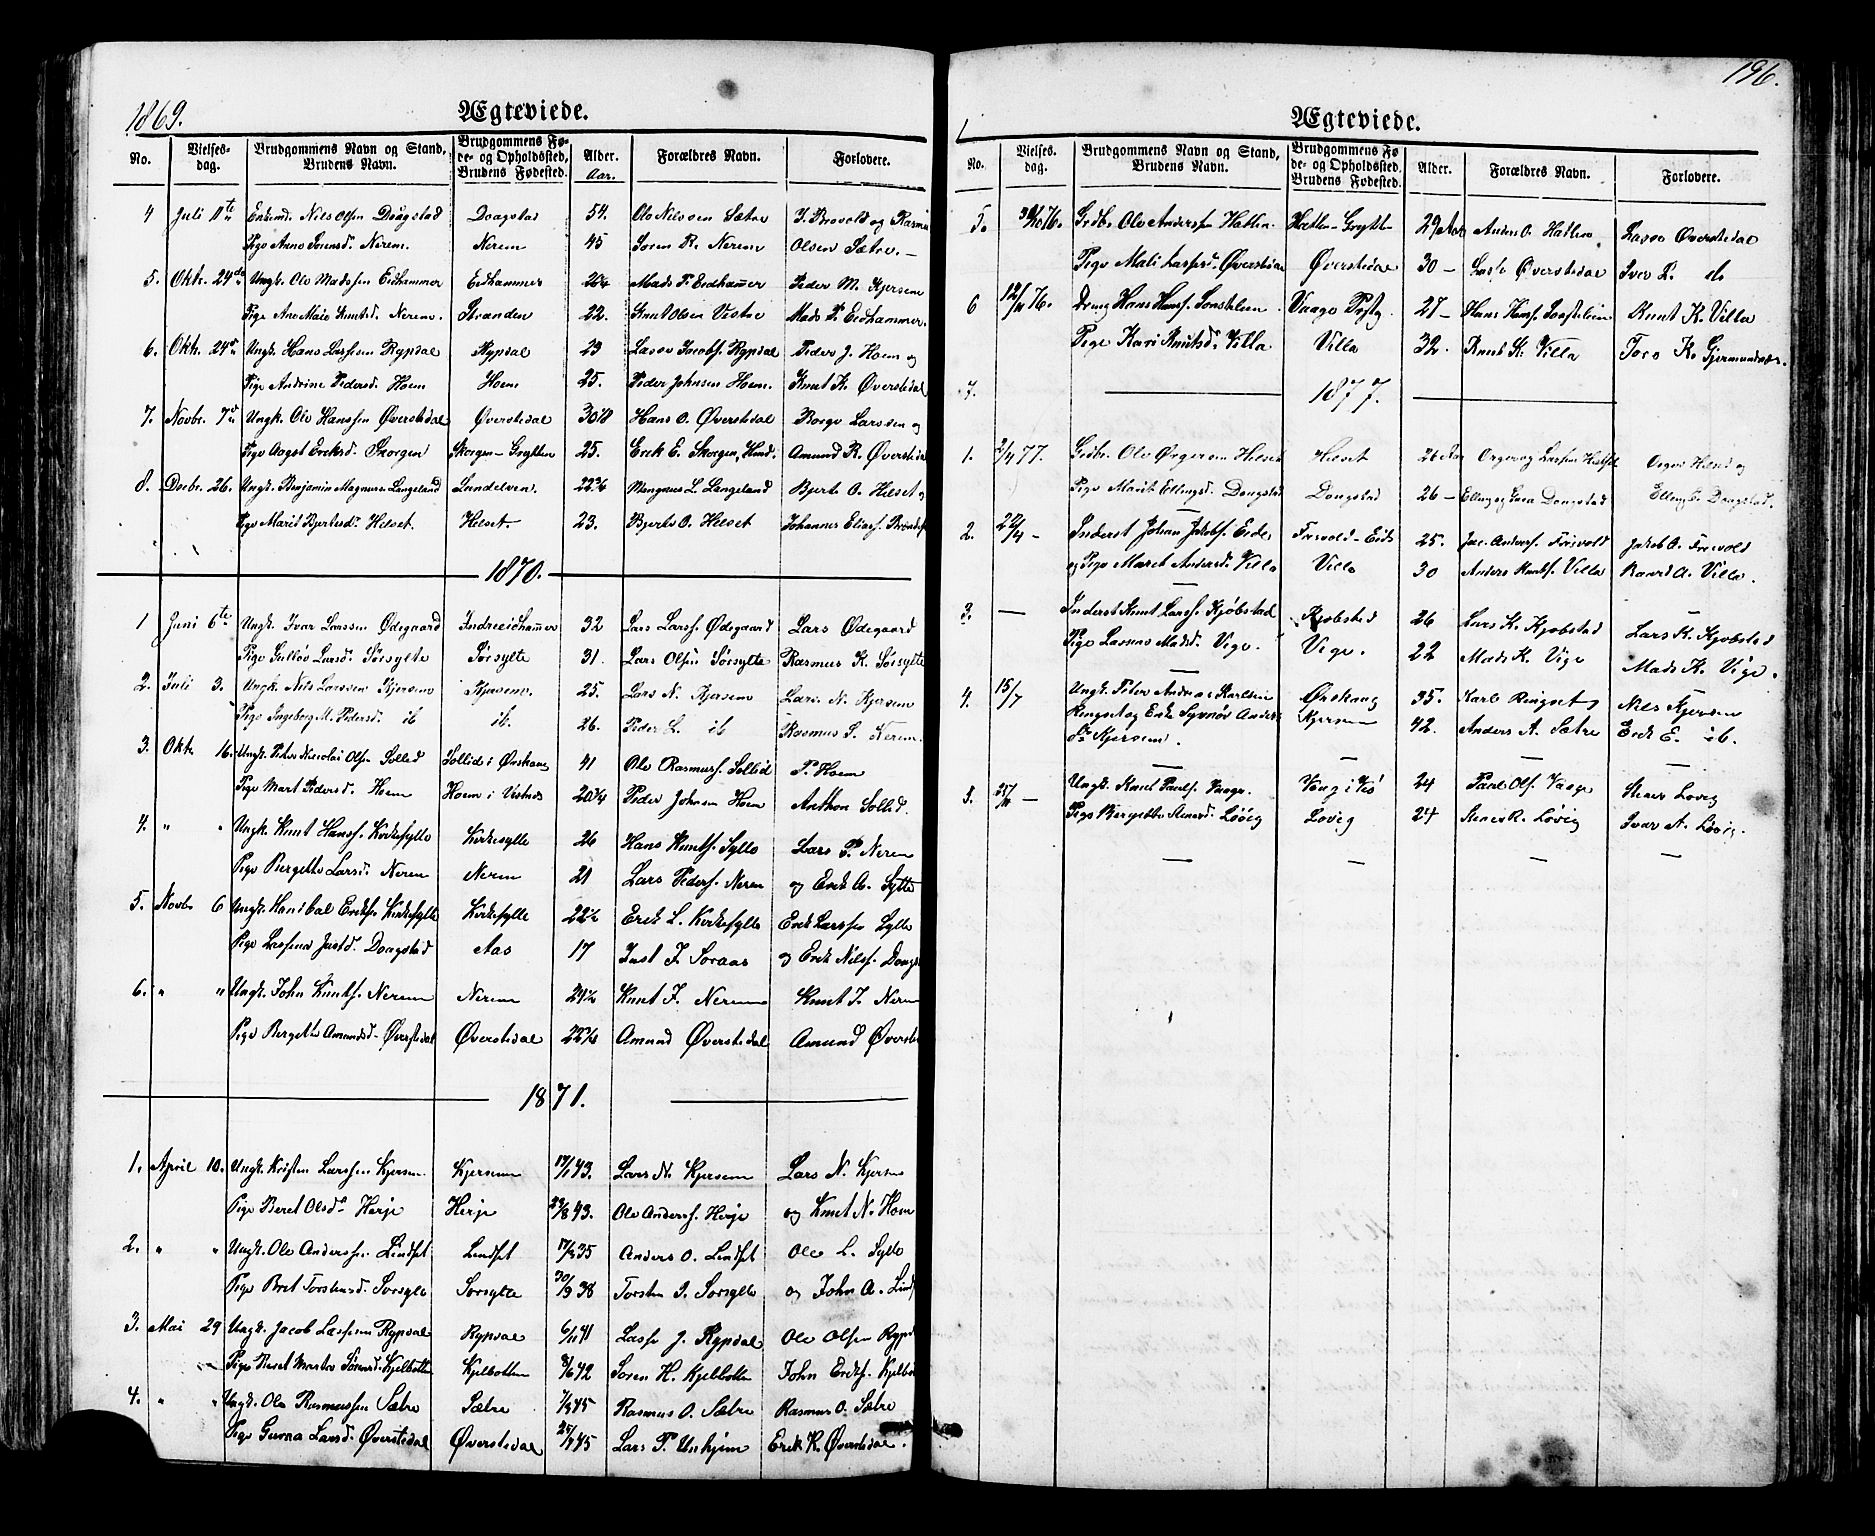 1869.
Ægteviede.
No. Vielses-dag. Brudgommens Navn og Stand, Brudens Navn. Brudgommens Fø-de- og Opholdssted, Brudens Fødested. Alder. Aar. Forældres Navn. Forlovere.
4 Juli 11te Enkemd. Nils Olsen Daagstad Daagstad 54. Ole Nilssen Sætre J. Brovold og Rasmus
Pige Anne Sørensd. Nerem. Nerem 45 Søren R. Nerem Olsen Sætre. —
5. Oktr. 24de Ungk. Ole Madssen Eidhammer Eidhammer Mads P. Eidhammer Peder M. Kjersem
Pige Ane Marie Knutsd. Nerem. Stranden 22. Knut Olsen Vestre Mads P. Eidhammer.
6. Oktr. 24de Ungk. Hans Lassesen Rypdal Rypdal 23 Lasse Jacobs. Rypdal Peder J. Hoem og
Pige Andrine Pedersd. Hoem Hoem 25. Peder Johnsen Hoem. Knut K. Øverstedal
7. Novbr. 7de Ungk. Ole Hanssen Øverstedal Øverstedal Hans O. Øverstedal Børge Larssen og
Pige Aagot Eriksd. Skorgen Skorgen - Grytten 25. Erik E. Skorgen, Hund. Amund R. Øverstedal
8. Decbr. 26. Ungk. Benjamin Magnuss. Langeland 22¾ Mangnus L. Langeland Bjerte O. Helset og
Pige Marit Bjertesd. Helset Helset. 23. Bjerte O. Helset Johannes Eliass.
1870.
1 Juni 6te Ungk. Ivar Larssen Ødegaard Indreeidhammer 32 Lars Larss. Ødegaard Lars Ødegaard
Pige Gulløv Larsd. Sørsylte Sørsylte 31. Lars Olsen Sørsylte Rasmus K. Sørsylte
2. Juli 3. Ungk. Nils Larssen Kjersem Kjersem. 25. Lars N. Kjersem Lars N. Kjersem
Pige Ingeborg M. Pedersd. ib ib. 26. Peder L. ib Rasmus S. Nerem.
3. Oktr 16. Ungk. Peter Nicolai Ols. Sollid Sollid i Ørskoug 41 Ole Rasmuss. Sollid P. Hoem
Pige Mart Pedersd. Hoem Hoem i Vestnes 20¼ Peder Johnsen Hoem Anthon Sollid.
4. " " Ungk. Knut Hanss. Kirkesylte Kirkesylte 26 Hans Knuts. Sylte Lars P. Nerem
Pige Bergette Larsd. Nerem Nerem 21 Lars Peders. Neren og Erik A. Sylte
5. Novbr 6 Ungk. Hanibal Eriks. Kirkesylte Kirkesylte 22½ Erik L. Kirkesylte Erik Larssen Sylte
Pige Lassine Justd. Daagstad Aas 17 Just J. Soraas og Erik Nilss. Daagst
6. " " Ungk. John Knuts. Nerem Nerem 21½ Knut J. Nerem Knut J. Nerem
Pige Bergette Amundsd. Øverstedal Øverstedal 22¾ Amund Øverstedal Amund Øverste
1871.
1. April 10. Ungk. Kristen Larssen Kjersem Kjersem 43. Lars N. Kjersem Lars N. Kjersem
Pige Beret Olsdr. Herje Herje 23/8 43. Ole Anderss. Herje og Knut N. Hoem
2. " " Ungk. Ole Anderssen Lindset Lindset 35 Anders O. Lindset Ole L. Sylte
Pige Bret Torstensd. Sorsylte Sorsylte 30/9 38 Torsten J. Sorsylte og John A. Linds
3. Mai 29 Ungk. Jacob Lassesen Rypdal Rypdal 6/11 41 Lasse J. Rypdal Ole Olsen Rypd
Pige Beret Marta Sørensd. Kjelbotten Kjelbotten 8/6 42 Soren H. Kjelbotten John Eriks. Kjelbo
4. " " Ungk. Ole Rasmussen Sætre Sætre 45 Rasmus O. Sætre Rasmus O. Sætre
Pige Gunna Larsd. Øverstedal Øverstedal 45 Lars P. Unhjem Erik K. Øverstedal.
196.
Ægteviede.
No. Vielses-dag. Brudgommens Navn og Stand, Brudens Navn. Brudgommens Fø-de- og Opholdssted, Brudens Fødested. Alder. Forældres Navn. Forlovere.
5. 30/10 76. Grdbr. Ole Anderssen Hatlen Hatlen - Grytten 29 Aar Anders O. Hatlen Lasse Øverstedal
Pige Mali Lassesd. Øverstedal Øverstedal 30 — Lasse Øverstedal Iver L. do
6 12/11 76. Dreng Hans Hanss. Vaage 27 — Hans Hanss. Knut K. Villa
Pige Kari Knutsd. Villa Villa 32. Knut K. Villa Tore K. Gjermundnæs.
7.
1877.
1. 2/4 77. Grdbr. Ole Helset Helset 26 Aar Helset og
Pige Marit Ellingsd. Dougstad Dougstad 26 — Dougstad Elling E. Dougstad.
2. 22/4 — Inderst Johan Jakobs. Eide Frisvold - Eids 25. Jac. Anders. Frisvold Jakob A. Frisvold
og Pige Maret Andersd. Villa Villa 30 Anders Knuts. Villa Baard A. Villa.
3. — Inderst Knut Larss. Kjøbstad Kjøbstad 26 Lars K. Kjøbstad Lars K. Kjøbstad
Pige Lassine Madsd. Vige. Vige. 22 Mads K. Vige Mads K. Vige.
4. 15/7 Ungk. Peter Andreas Karlsen Ørskoug 35. Karl Ringset og Nils Kjersem
Ringset og Enke Synnøv Anders Kjersem 42. Anders A. Sætre Erik E. ib.
Dr. Kjersem.
5. 25/11 — Ungk. Knut Pauls. Vaage. 24 Paul Ols. Vaage Stener Lovig
Pige Bergitte Stenersd. Løvig Lovig 24 Stener R. Løvig Ivar A. Løvig.